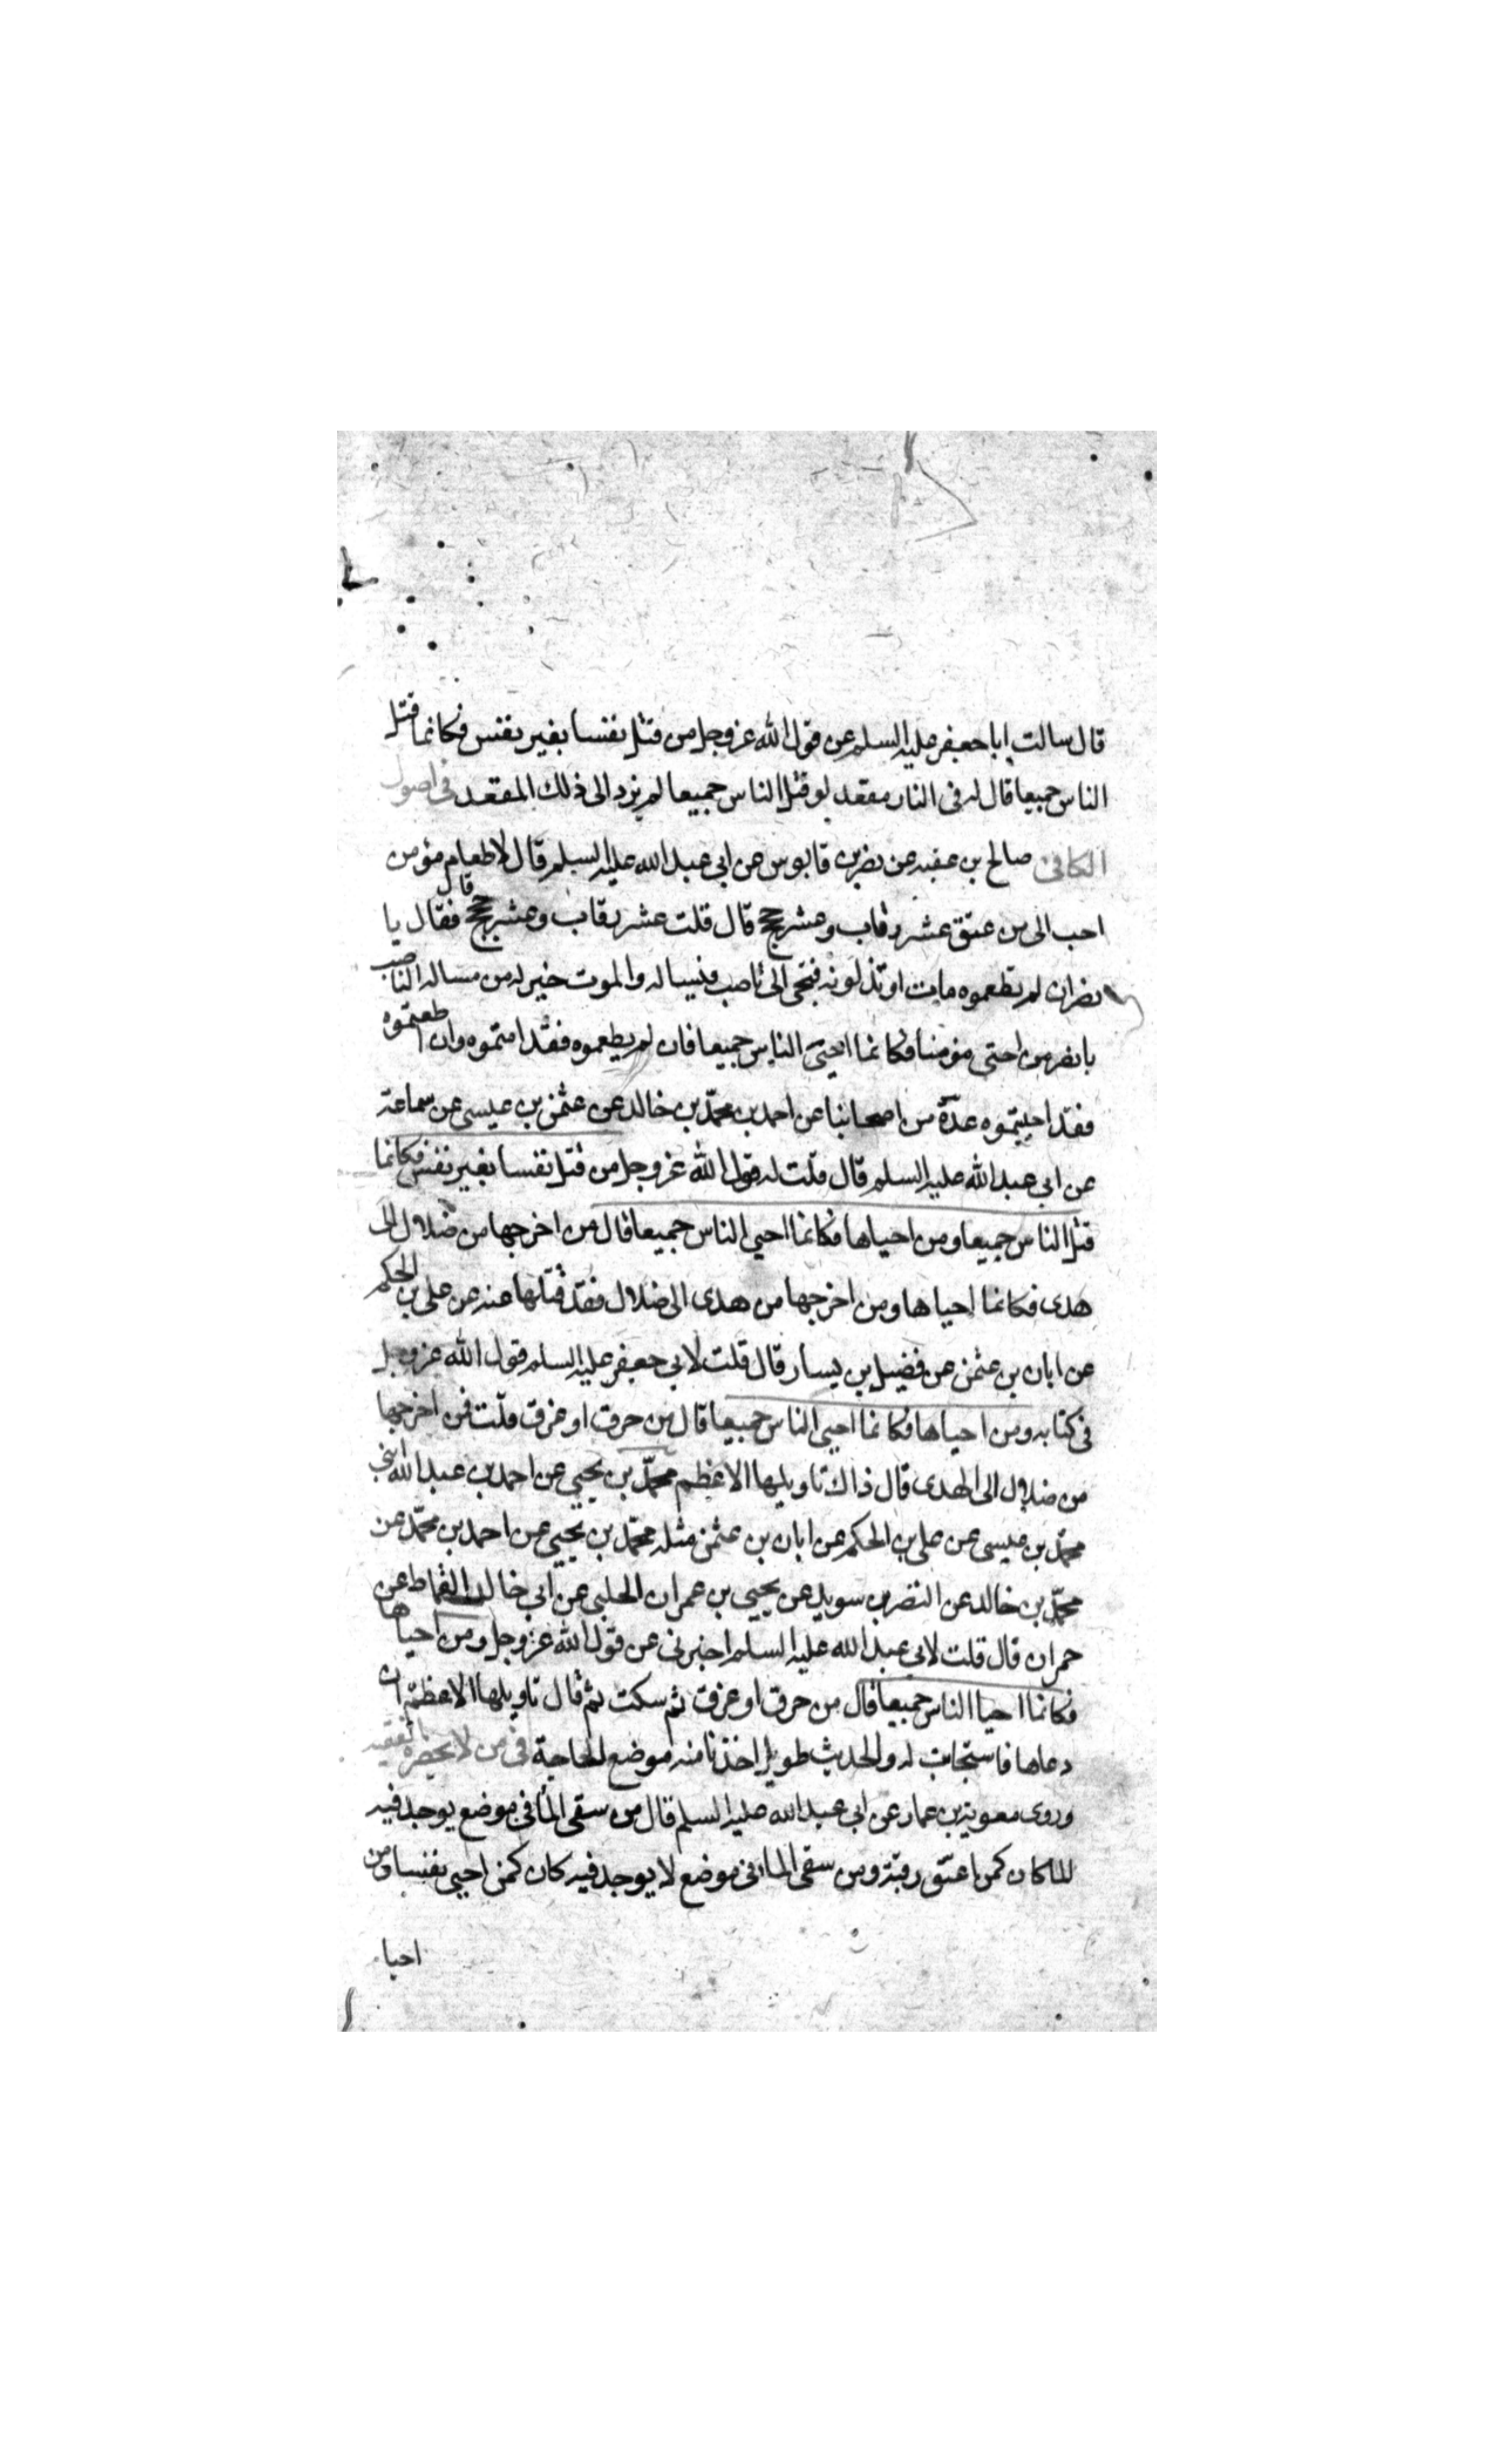 قال سالت ابا جعفر عليه السلم عن قول الله عز وجل من قتل نفسا بغير نفس فكانما قتل
الناس جميعا قال له فى النار مقعد لو قتل الناس جميعا لم يزد الى ذلك المقعد فى اصول
الكافى صالح بن عقبه عن نضر بن قابوس عن ابى عبد الله عليه السلم قال لاطعام مؤمن
احب الى من عتق عشر رقاب وعشر حجج قال قلت عشر رقاب وعشر حجج قال فقال يا
نضر ان لم تطعموه مات او تذلونه فيجئ الى ناصب فيساله والموت خير له من مسالة الناصب
يا نضر من احيى مؤمنا فكانما احيى الناس جميعا فان لم يطعموه فقد امتموه وان اطعمتموه
فقد احييتموه عدة من اصحابنا عن احمد بن محمد بن خالد عن عثمن بن عيسى عن سماعة
عن ابى عبد الله عليه السلم قال قلت له قول الله عز وجل من قتل نفسا بغير نفس فكانما
قتل الناس جميعا ومن احياها فكانما احيى الناس جميعا قال من اخرجها من ضلال الى
هدى فكانما احياها ومن اخرجها من هدى الى ضلال فقد قتلها عنه عن على بن الحكم
عن ابان بن عثمن عن فضيل بن يسار قال قلت لابى جعفر عليه السلم قول الله عز وجل
فى كتابه ومن احياها فكانما احيى الناس جميعا قال من حرق او غرق قلت فمن اخرجها
من ضلال الى الهدى قال ذاك تاويلها الاعظم محمد بن يحيى عن احمد بن عبد الله ابنى
محمد بن عيسى عن على بن الحكم عن ابان بن عثمن مثله محمد بن يحيى عن احمد بن محمد عن
محمد بن خالد عن النضر بن سويد عن يحيى بن عمران الحلبى عن ابى خالد القماط عن
حمران قال قلت لابى عبد الله عليه السلم اخبرنى عن قول الله عز وجل ومن احياها
فكانما احيا الناس جميعا قال من حرق او غرق ثم سكت ثم قال تاويلها الاعظم ان
دعاها فاستجابت له والحديث طويل اخذنا منه موضع الحاجة فى من لا يحضره الفقيه
وروى معوية بن عمار عن ابى عبد الله عليه السلم قال من سقى الما فى موضع يوجد فيه
الما كان كمن اعتق رقبة ومن سقى الما فى موضع لا يوجد فيه كان كمن احيى نفسا ومن
احيا